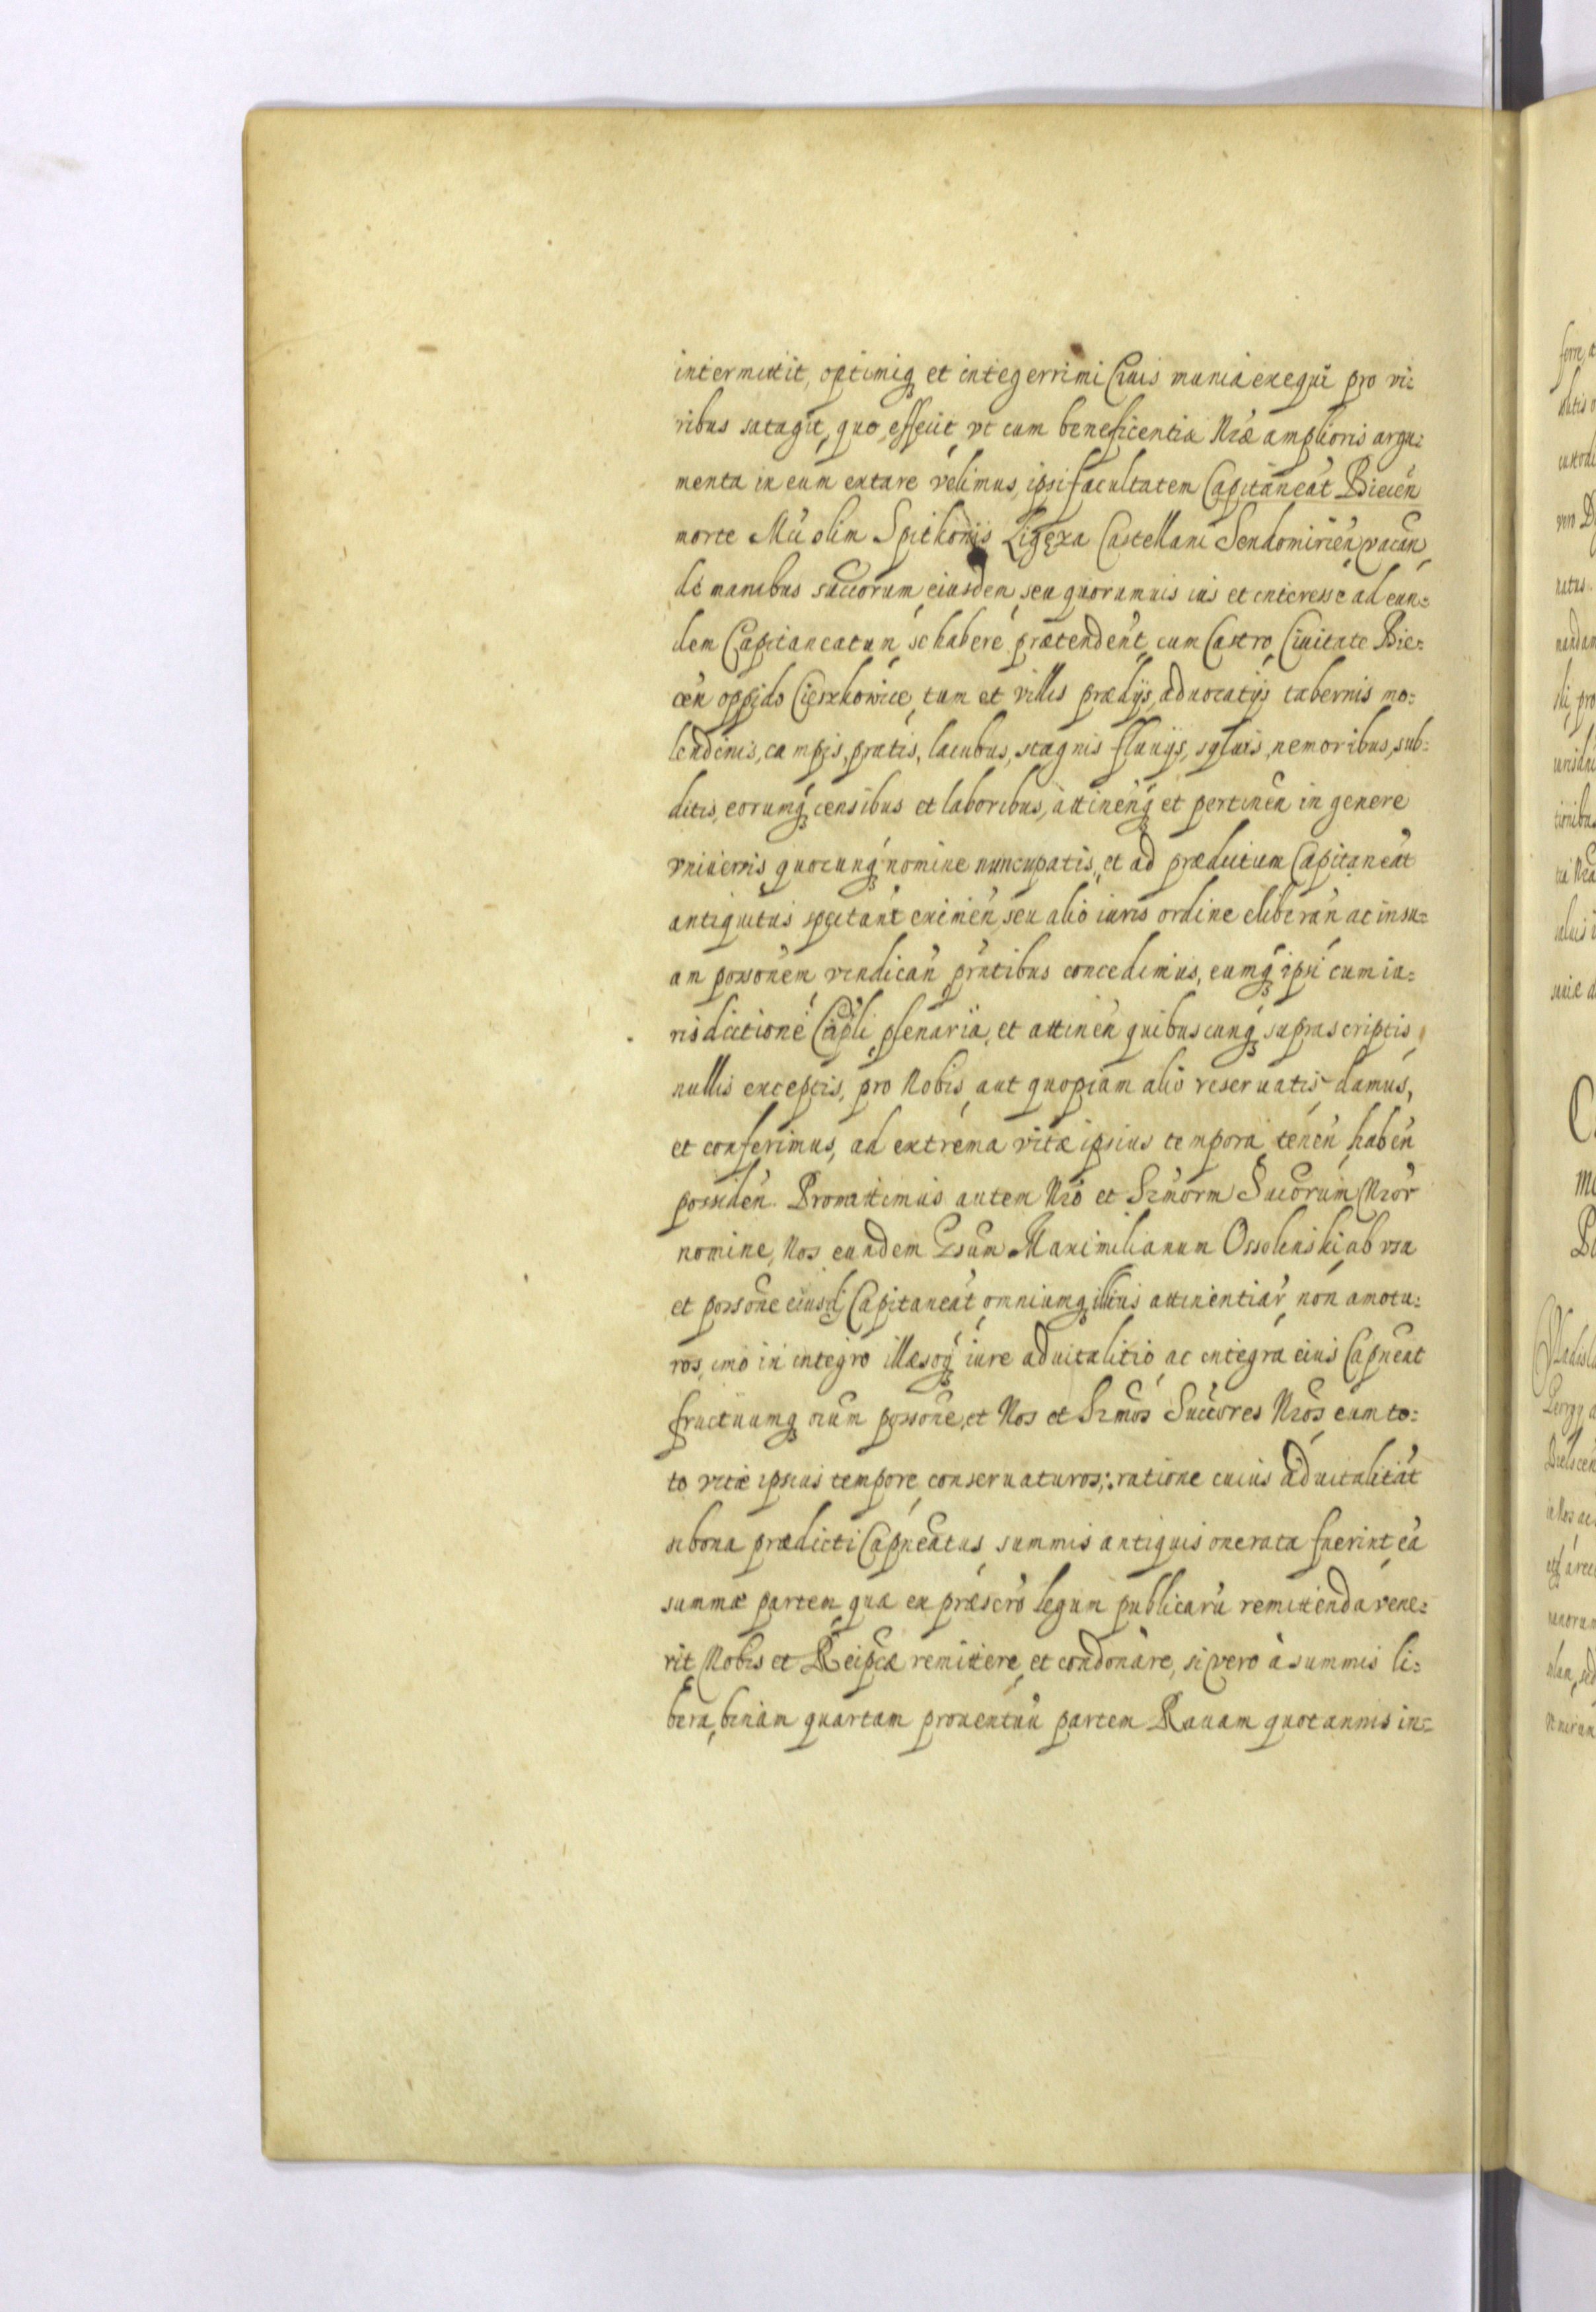 intermittit, optimiq et integerrimi Ciuis munia exequi pro vi:
ribus satagit, quo effecit vt cum beneficentiæ Nræ amplioris argu:
menta in eum extare velimus, ipsi facultatem Capitaneat Biecen
morte Mci olim Spitkonis Ligęza Castellani Sendomirien vacan
de manibus succorum eiusdem seu quorumuis ius et interesse ad eun:
dem Capitaneatum se habere prætendent cum Castro Ciuitate Bie:
cen oppido Cięszkowice tum et villis prædijs, aduocatijs tabernis mo:
lendinis, campis, pratis, lacubus, stagnis fluuijs, syluis, nemoribus, sub:
ditis, eorumq censibus et laboribus, attinenq et pertinen in genere
vniuersis quocunq nomine nuncupatis, et ad prædictum Capitaneat
antiquitus spectant eximen seu alio iuris ordine eliberan ac in su:
am possonem vendican pntibus concedimus, eumq ipsi cum iu:
risdictione Capli plenaria, et attinen quibuscunq suprascriptis
nullis exceptis, pro Nobis aut quopiam alio reseruatis damus,
et conferimus, ad extrema vitæ ipsius tempora tenen haben
possiden. Promittimus autem Nro et Srmorm Succorum Nror
nomine, Nos eundem Gsum Maximilianum Ossolinski ab vsu
et possone eiusd Capitaneat omniumq illius attinentiar non amotu:
ros, imo in integro illæsoq iure aduitalitio ac integra eius Capneat
fructuumq oium possone, et Nos et Srmos Succores Nros eum to:
to vitæ ipsius tempore conseruaturos: ratione cuius aduitalitat
si bona prædicti Capneatus summis antiquis onerata fuerint ea
summæ partem quæ ex præscro legum publicaru remittenda vene:
rit Nobis et Reipcæ remittere et condonare, si vero à summis li:
bera, binam quartam prouentuu partem Rauam quotannis in: